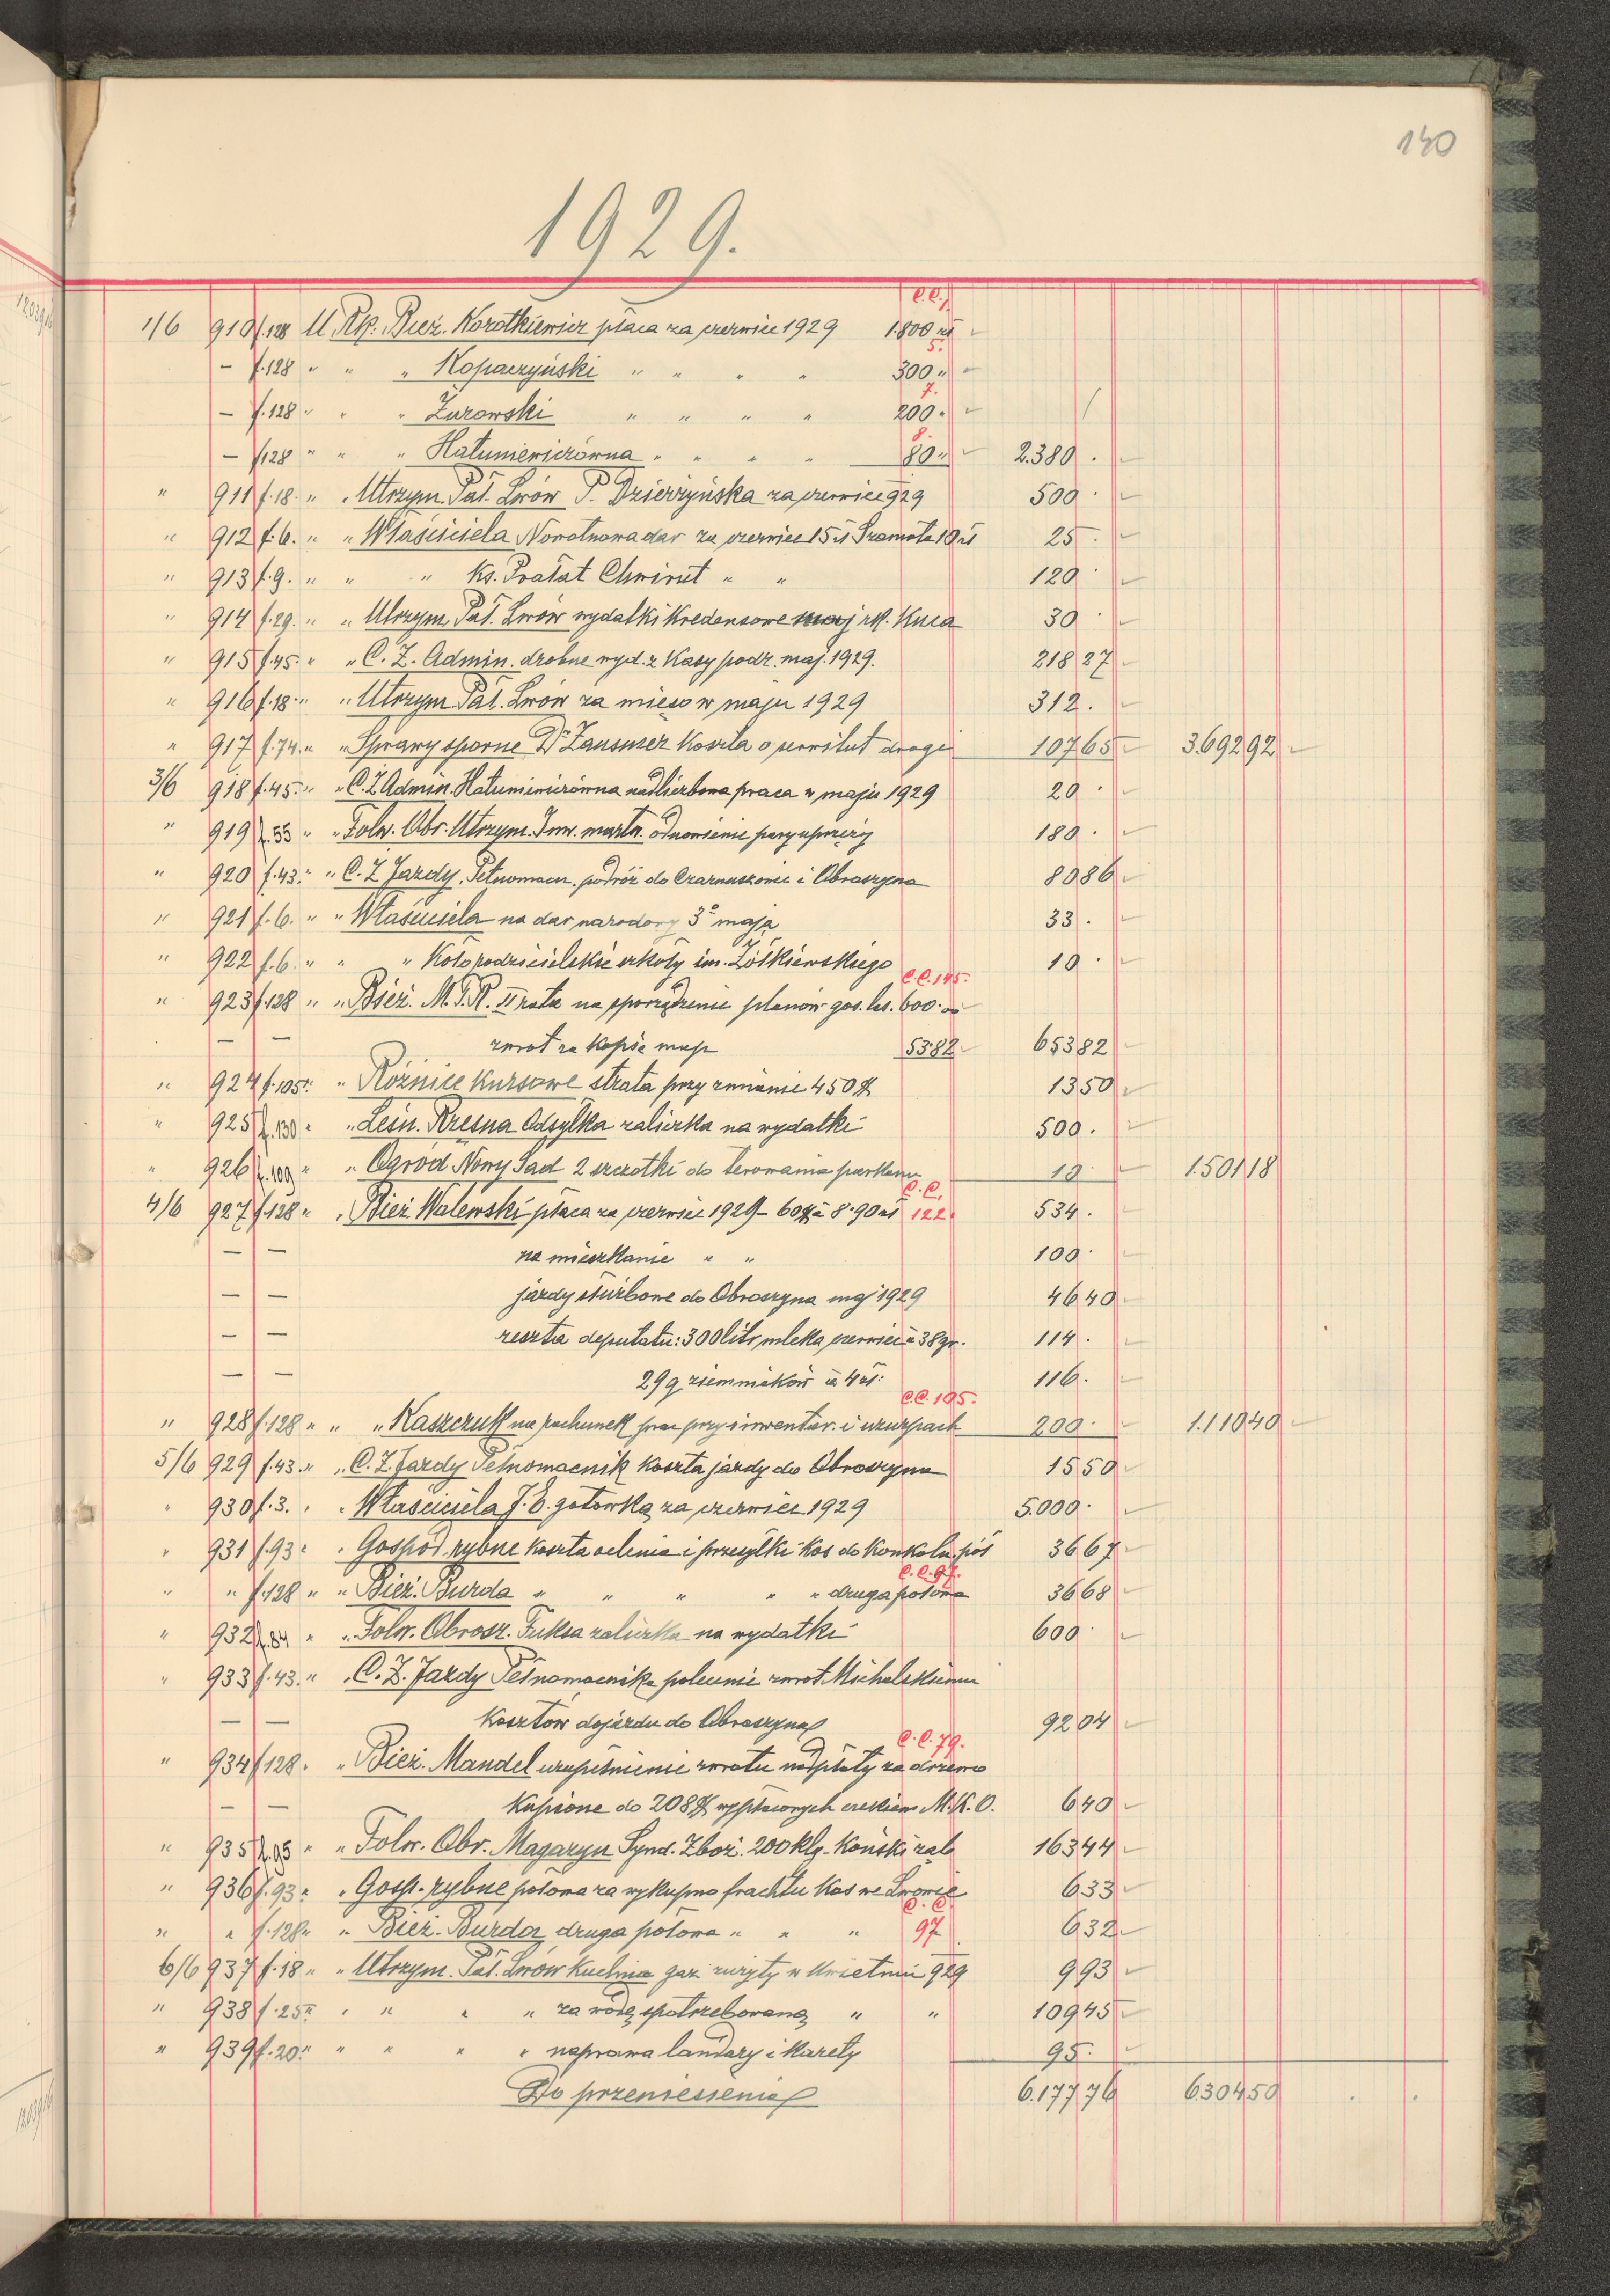 130
1929.
C.C. 1.
1/6 910 f.128 U Rk. Bież. Korotkiewicz płaca za czerwiec 1929 1.800 zł
5.
– f.128 " " " Kopaczyński " " " " 300 "
7.
– f.128 " " " Żurowski " " " " 200 "
8.
– f.128 " " " Hatuniewiczówna " " " " 80 " 2.380 .
" 911 f.18. " " Utrzym. Pał. Lwów P. Dzierżyńska za czerwiec 929 500 .
" 912 f.6. " " Właściciela Nowotnowa dar za czerwiec 15 zł Szamota 10 zł 25 .
" 913 f.9. " " " Ks. Prałat Chwirut " " 120 .
" 914 f.29. " " Utrzym. Pał. Lwów wydatki kredensowe maj rk. Kuca 30 .
" 915 f.45. " " C. Z. Admin. drobne wyd. z Kasy podr. maj. 1929. 218 27
" 916 f.18. " " Utrzym Pał. Lwów za mięso w maju 1929 312 .
" 917 f.74. " " Sprawy sporne Dr Zausmer Koszta o serwitut drogi 107 65 3.692 92
3/6 918 f.45. " " C. Z Admin. Hatuniewiczówna nadliczbowa praca w maju 1929 20 .
" 919 f.55 " " Folw. Obr. Utrzym. Inw. martw. odnowienie pary uprzęży 180 .
" 920 f.43. " " C. Z Jazdy, Pełnomocn. podróż do Czarnuszowic i Obroszyna 80 86
" 921 f.6. " " Właściciela na dar narodowy 3o maja 33 .
" 922 f.6. " " " Koło rodzicielskie szkoły im. Żółkiewskiego 10 .
C.C. 145.
" 923 f.128 " " Bież. M.T.R. II rata na sporządzenie planów gos. las. 600.–
– – zwrot za kopie map 53.82 653 82
" 924 f.105. " " Różnice kursowe strata przy zmianie 450 $ 13 50
" 925 f.130 " " Leśn. Rzęsna Odsyłka zaliczka na wydatki 500 .
" 926 f.109 " " Ogród Nowy Sad 2 szczotki do terowania parkanu 10 . 1.501 18
C.C.
4/6 927 f.128 " " Bież Walewski płaca za czerwiec 1929 – 60 $ à 8.90 zł 122. 534 .
– – na mieszkanie " " 100 .
– – jazdy służbowe do Obroszyna maj 1929 46 40
– – reszta deputatu: 300 litr. mleka czerwiec à 38 gr. 114 .
– – 29 q ziemniaków à 4 zł: 116 .
C.C. 105.
" 928 f.128 " " " Kaszczuk na rachunek prac przy inwentar. i uzurpach 200 . 1.110 40
5/6 929 f.43. " " C. Z. Jazdy Pełnomocnik koszta jazdy do Obroszyna 15 50
" 930 f.3. " " Właściciela J. E. gotówką za czerwiec 1929 5.000 .
" 931 f.93 " " Gospod. rybne koszta oclenia i przesyłki kos do Konkoln. pół 36 67
C.C. 97.
" " f.128 " " Bież. Burda " " " " " druga połowa 36 68
" 932 f.84 " " Folw. Obrosz. Fuksa zaliczka na wydatki 600 .
" 933 f.43. " " C. Z. Jazdy Pełnomocnika polecenie zwrot Michalskiemu
– – kosztów dojazdu do Obroszyna 92 04
C.C. 79.
" 934 f.128. " " Bież. Mandel uzupełnienie zwrotu nadpłaty za drzewo
– – kupione do 208 $ wypłaconych czekiem M.K.O. 6 40
" 935 f.95 " " Folw. Obr. Magazyn Synd. Zboż. 200 klg. Koński ząb 163 44
" 936 f.93 " " Gosp. rybne połowa za wykupno frachtu kos we Lwowie 6 33
C.C.
" " f.128 " " Bież. Burda druga połowa " " " 97 6 32
6/6 937 f.18 " " Utrzym. Pał. Lwów Kuchnia gaz zużyty w kwietniu 929 9 93
" 938 f.25 " " " " " za wodę spotrzebowaną " " 109 45
" 939 f.20. " " " " " naprawa landary i karety 95 .
Do przeniesienia 6.177 76 6304 50 . .